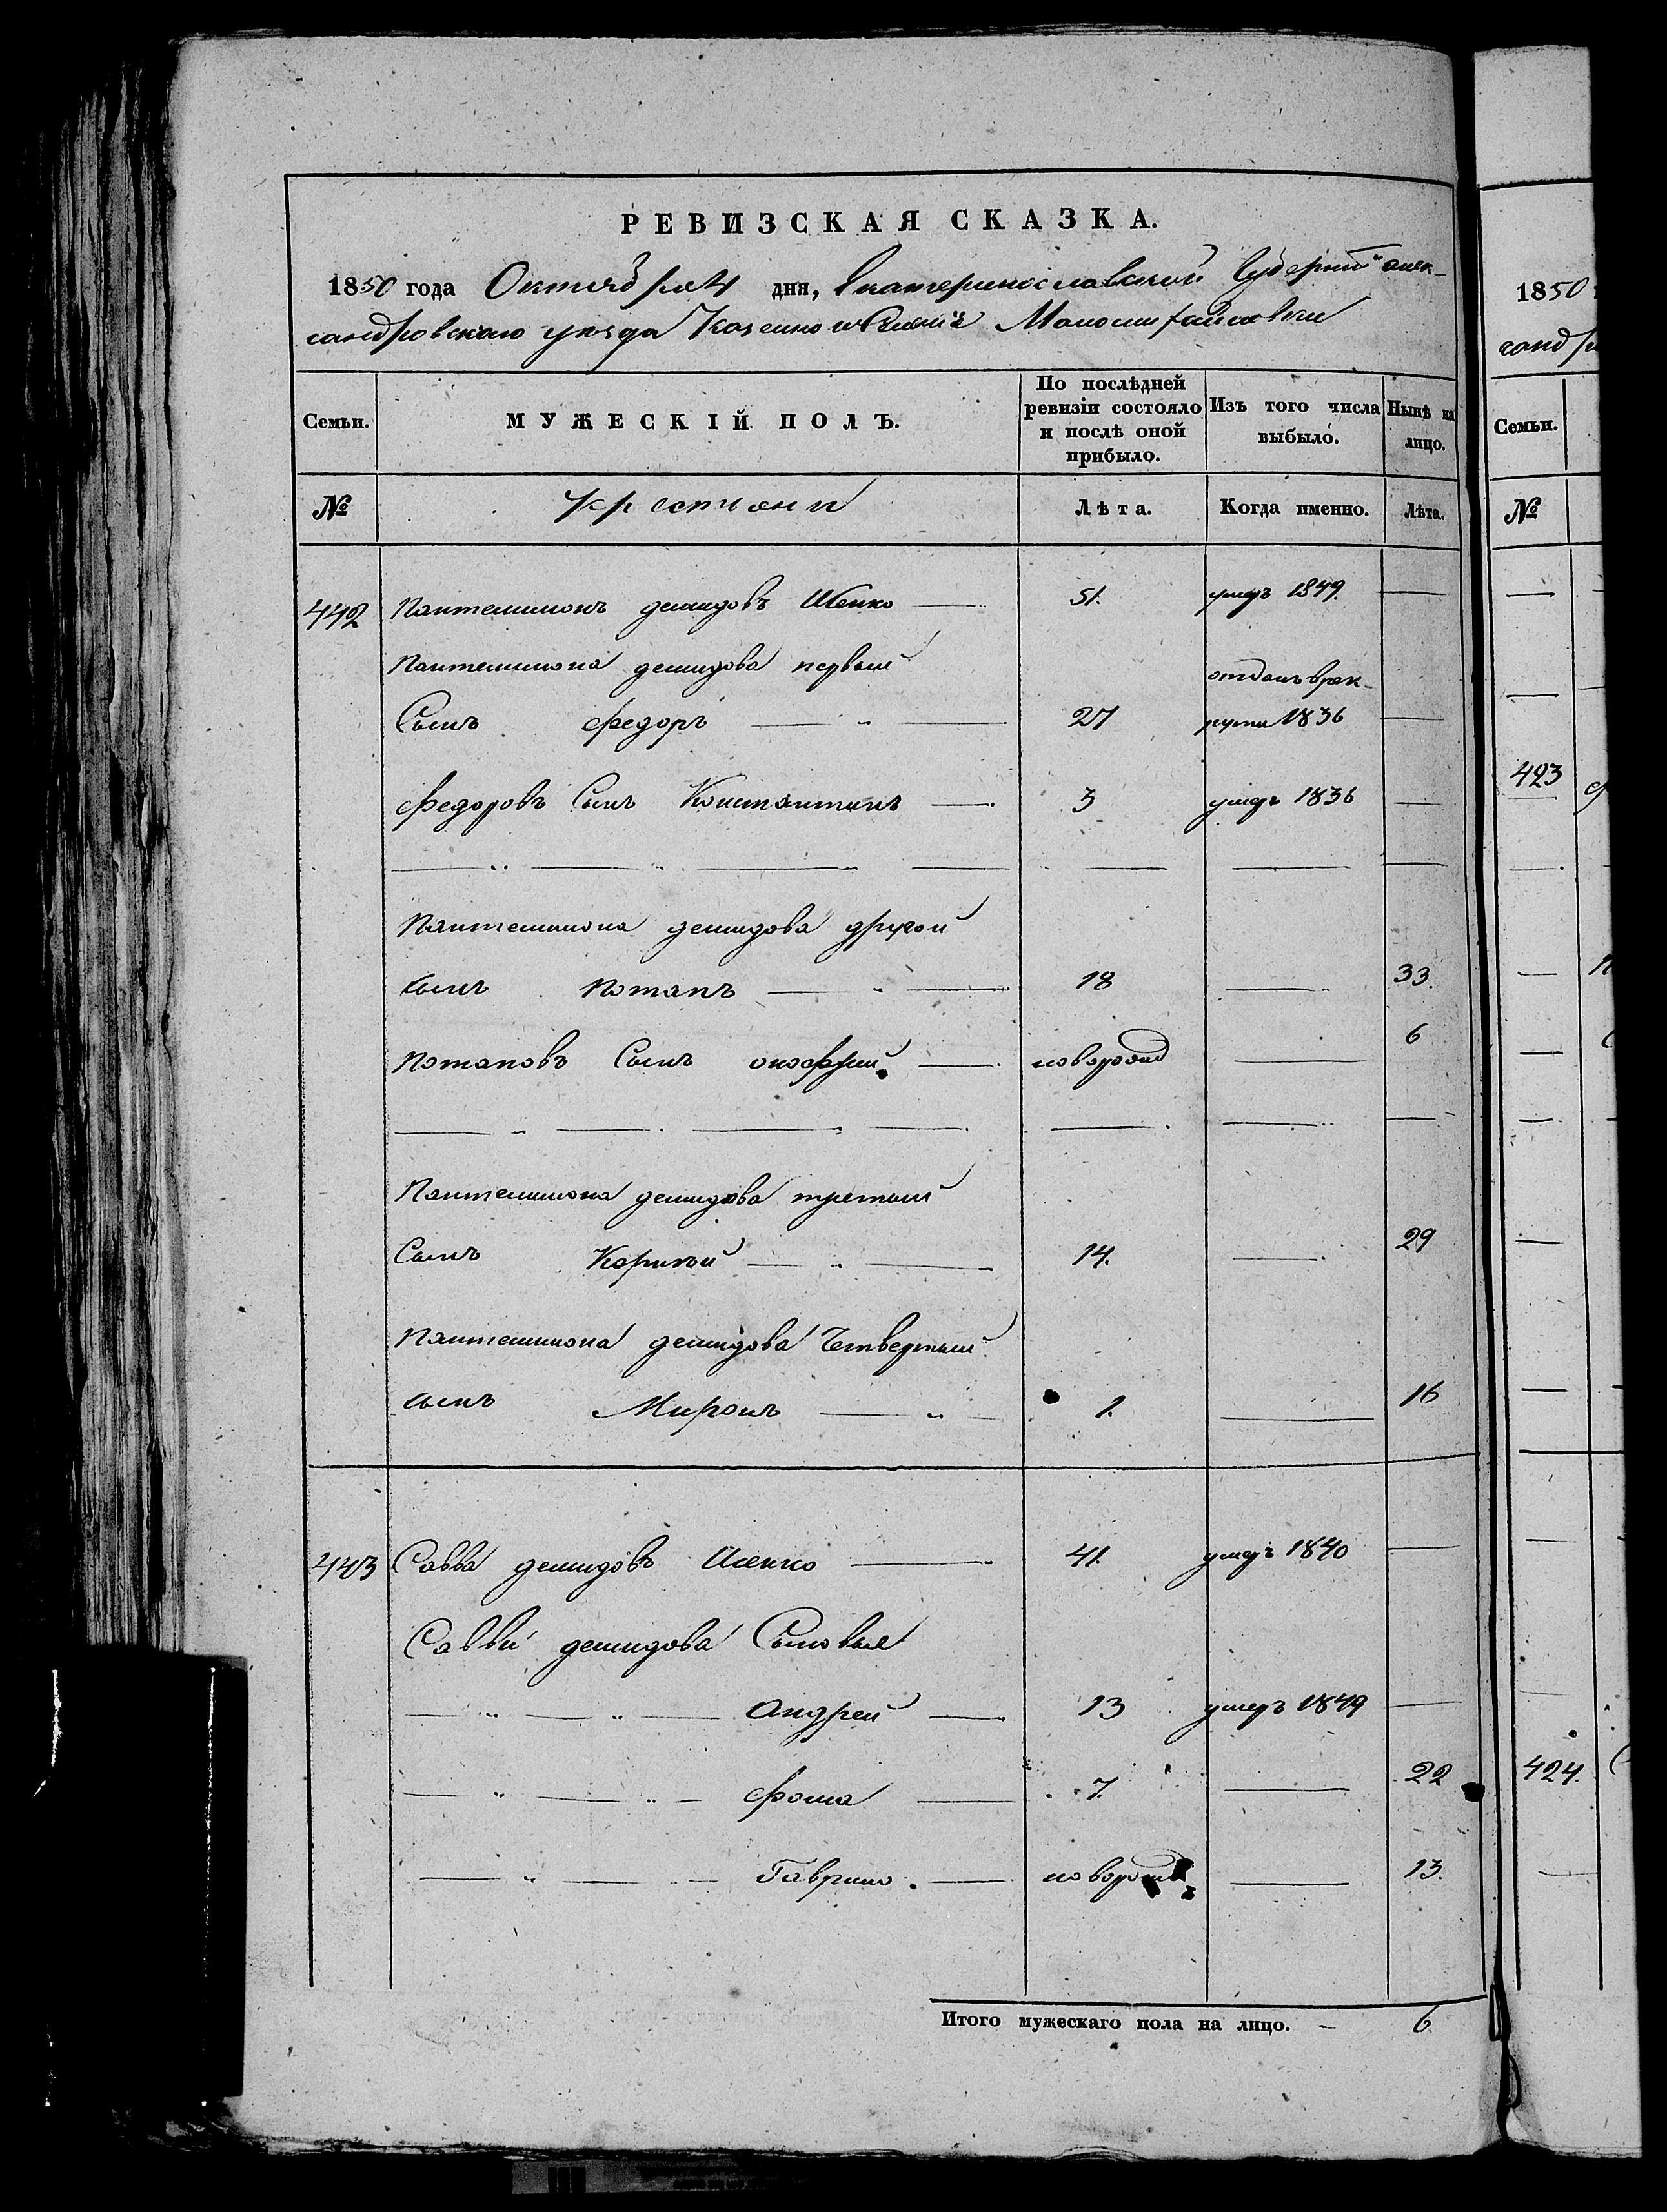 РЕВИЗСКАЯ СКАЗКА.
1850 года Октября 4 дня, Екатеринославской Губерніи алек-
сандровскаго уезда Казенно Маломихайловки
Семьи.
МУЖЕСКІЙ ПОЛЪ.
По послѣдней ревизіи состояло и послѣ оной прибыло.
Изъ того числа выбыло.
Нынѣ на лицо.
№
крестьяни
Лѣта.
Когда именно.
Лѣта.
442 Пантелимонъ демидовъ 51. умеръ 1849.
Пантелимона демидова первый отданъ врек-
Сынъ федоръ 27 руты 1836
федоровъ Сынъ Константинъ 3 умеръ 1836
Пантелимона демидова другой
сынъ Потапъ 18 33.
Потаповъ Сынъ новорожд 6
Пантелимона демидова третьий
Сынъ Корнѣй 14. 29
Пантелимона демидова Четвертый
сынъ Миронъ 1. 16
443 Савва демидовъ 41. умеръ 1840
Саввы демидова Сыновья
Андрей 13 умеръ 1849
фома 7. 22
Гаврило. новорожд 13.
Итого мужескаго пола на лицо. 6
1850
санд
Семьи.
№
423
424.